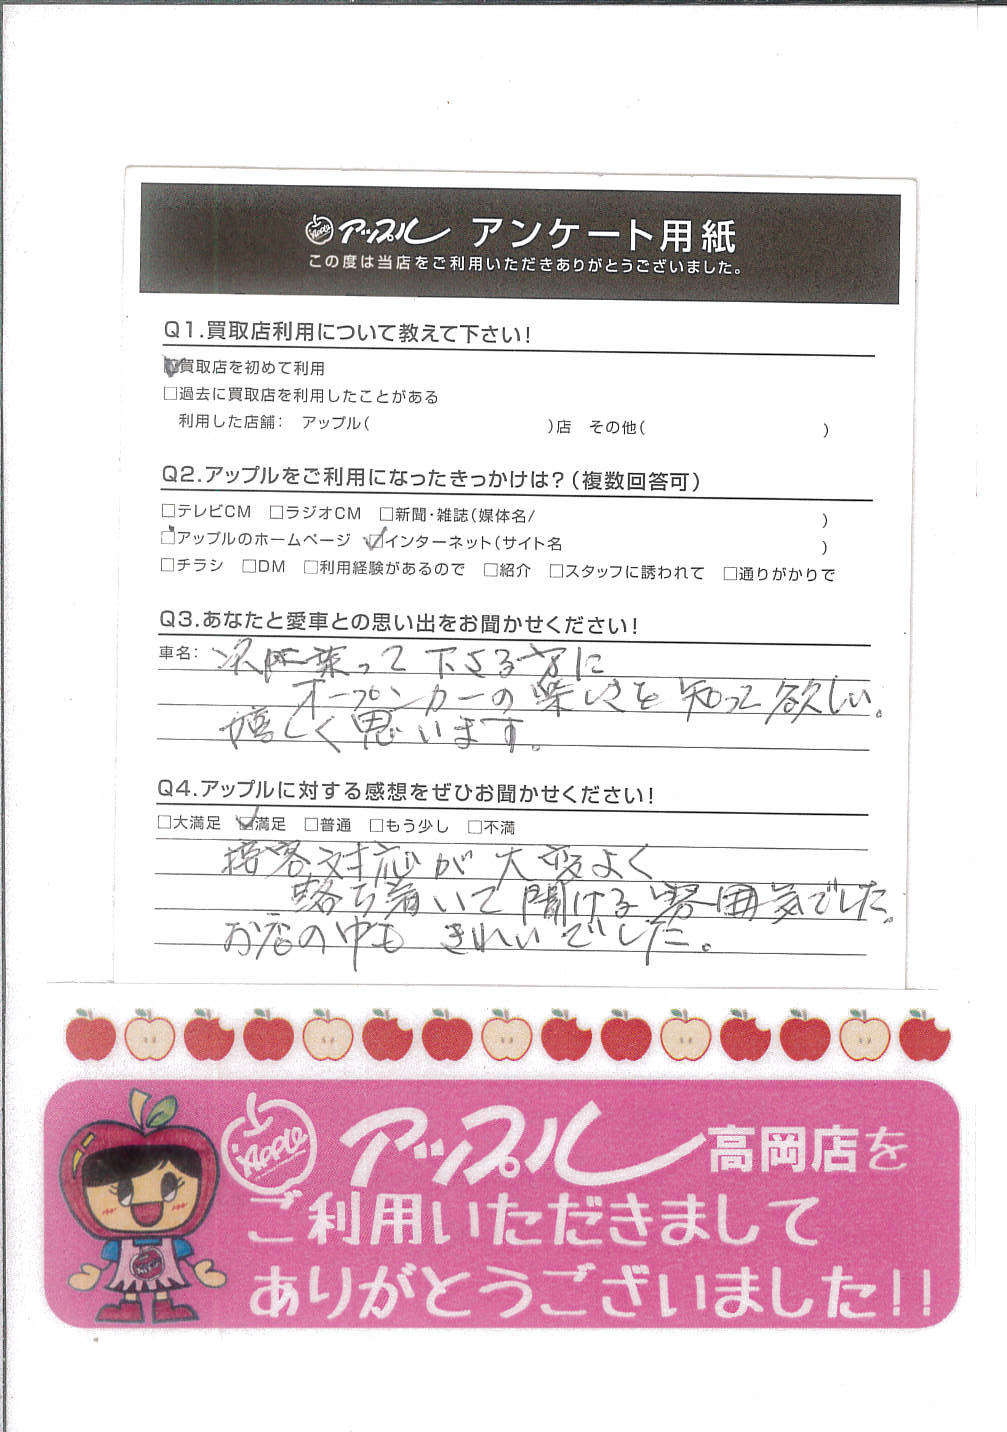 Apple アップル アンケート用紙
この度は当店をご利用いただきありがとうございました。
Q1.買取店利用について教えて下さい！
買取店を初めて利用
□過去に買取店を利用したことがある
利用した店舗： アップル( )店 その他( )
Q2.アップルをご利用になったきっかけは？（複数回答可）
□テレビCM □ラジオCM □新聞・雑誌（媒体名/ ）
□アップルのホームページ ☑インターネット（サイト名 ）
□チラシ □DM □利用経験があるので □紹介 □スタッフに誘われて □通りがかりで
Q3.あなたと愛車との思い出をお聞かせください！
車名： 次に乗って下さる方に
オープンカーの楽しさを知って欲しい。
嬉しく思います。
Q4.アップルに対する感想をぜひお聞かせください！
□大満足 ☑満足 □普通 □もう少し □不満
接客対応が大変よく
落ち着いて聞ける雰囲気でした。
お店の中もきれいでした。
Apple アップル 高岡店を
ご利用いただきまして
ありがとうございました!!